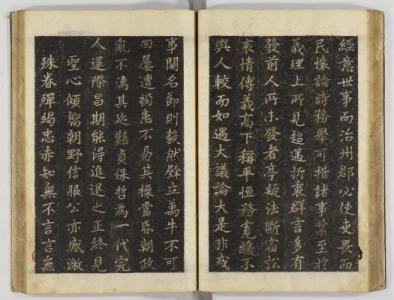 經意世事而治州郡必使吏畏而
民懷論時務舉可措諸事業至於
義理上所見超邁折衷群言多有
發前人所未發者亭疑法斷宿訟
衷情傳義高下稱平恒務寬緩不
與人較而如遇大議論大是非或
事關名節則毅然壁立萬牛不可
回屢遭禍患不易其操當昏朝政
亂不其迹艱貞保哲為一代完
人逮際昌期能得進退之正終見
聖心傾嚮朝野信服公亦感激
殊眷殫竭忠赤知無不言言無